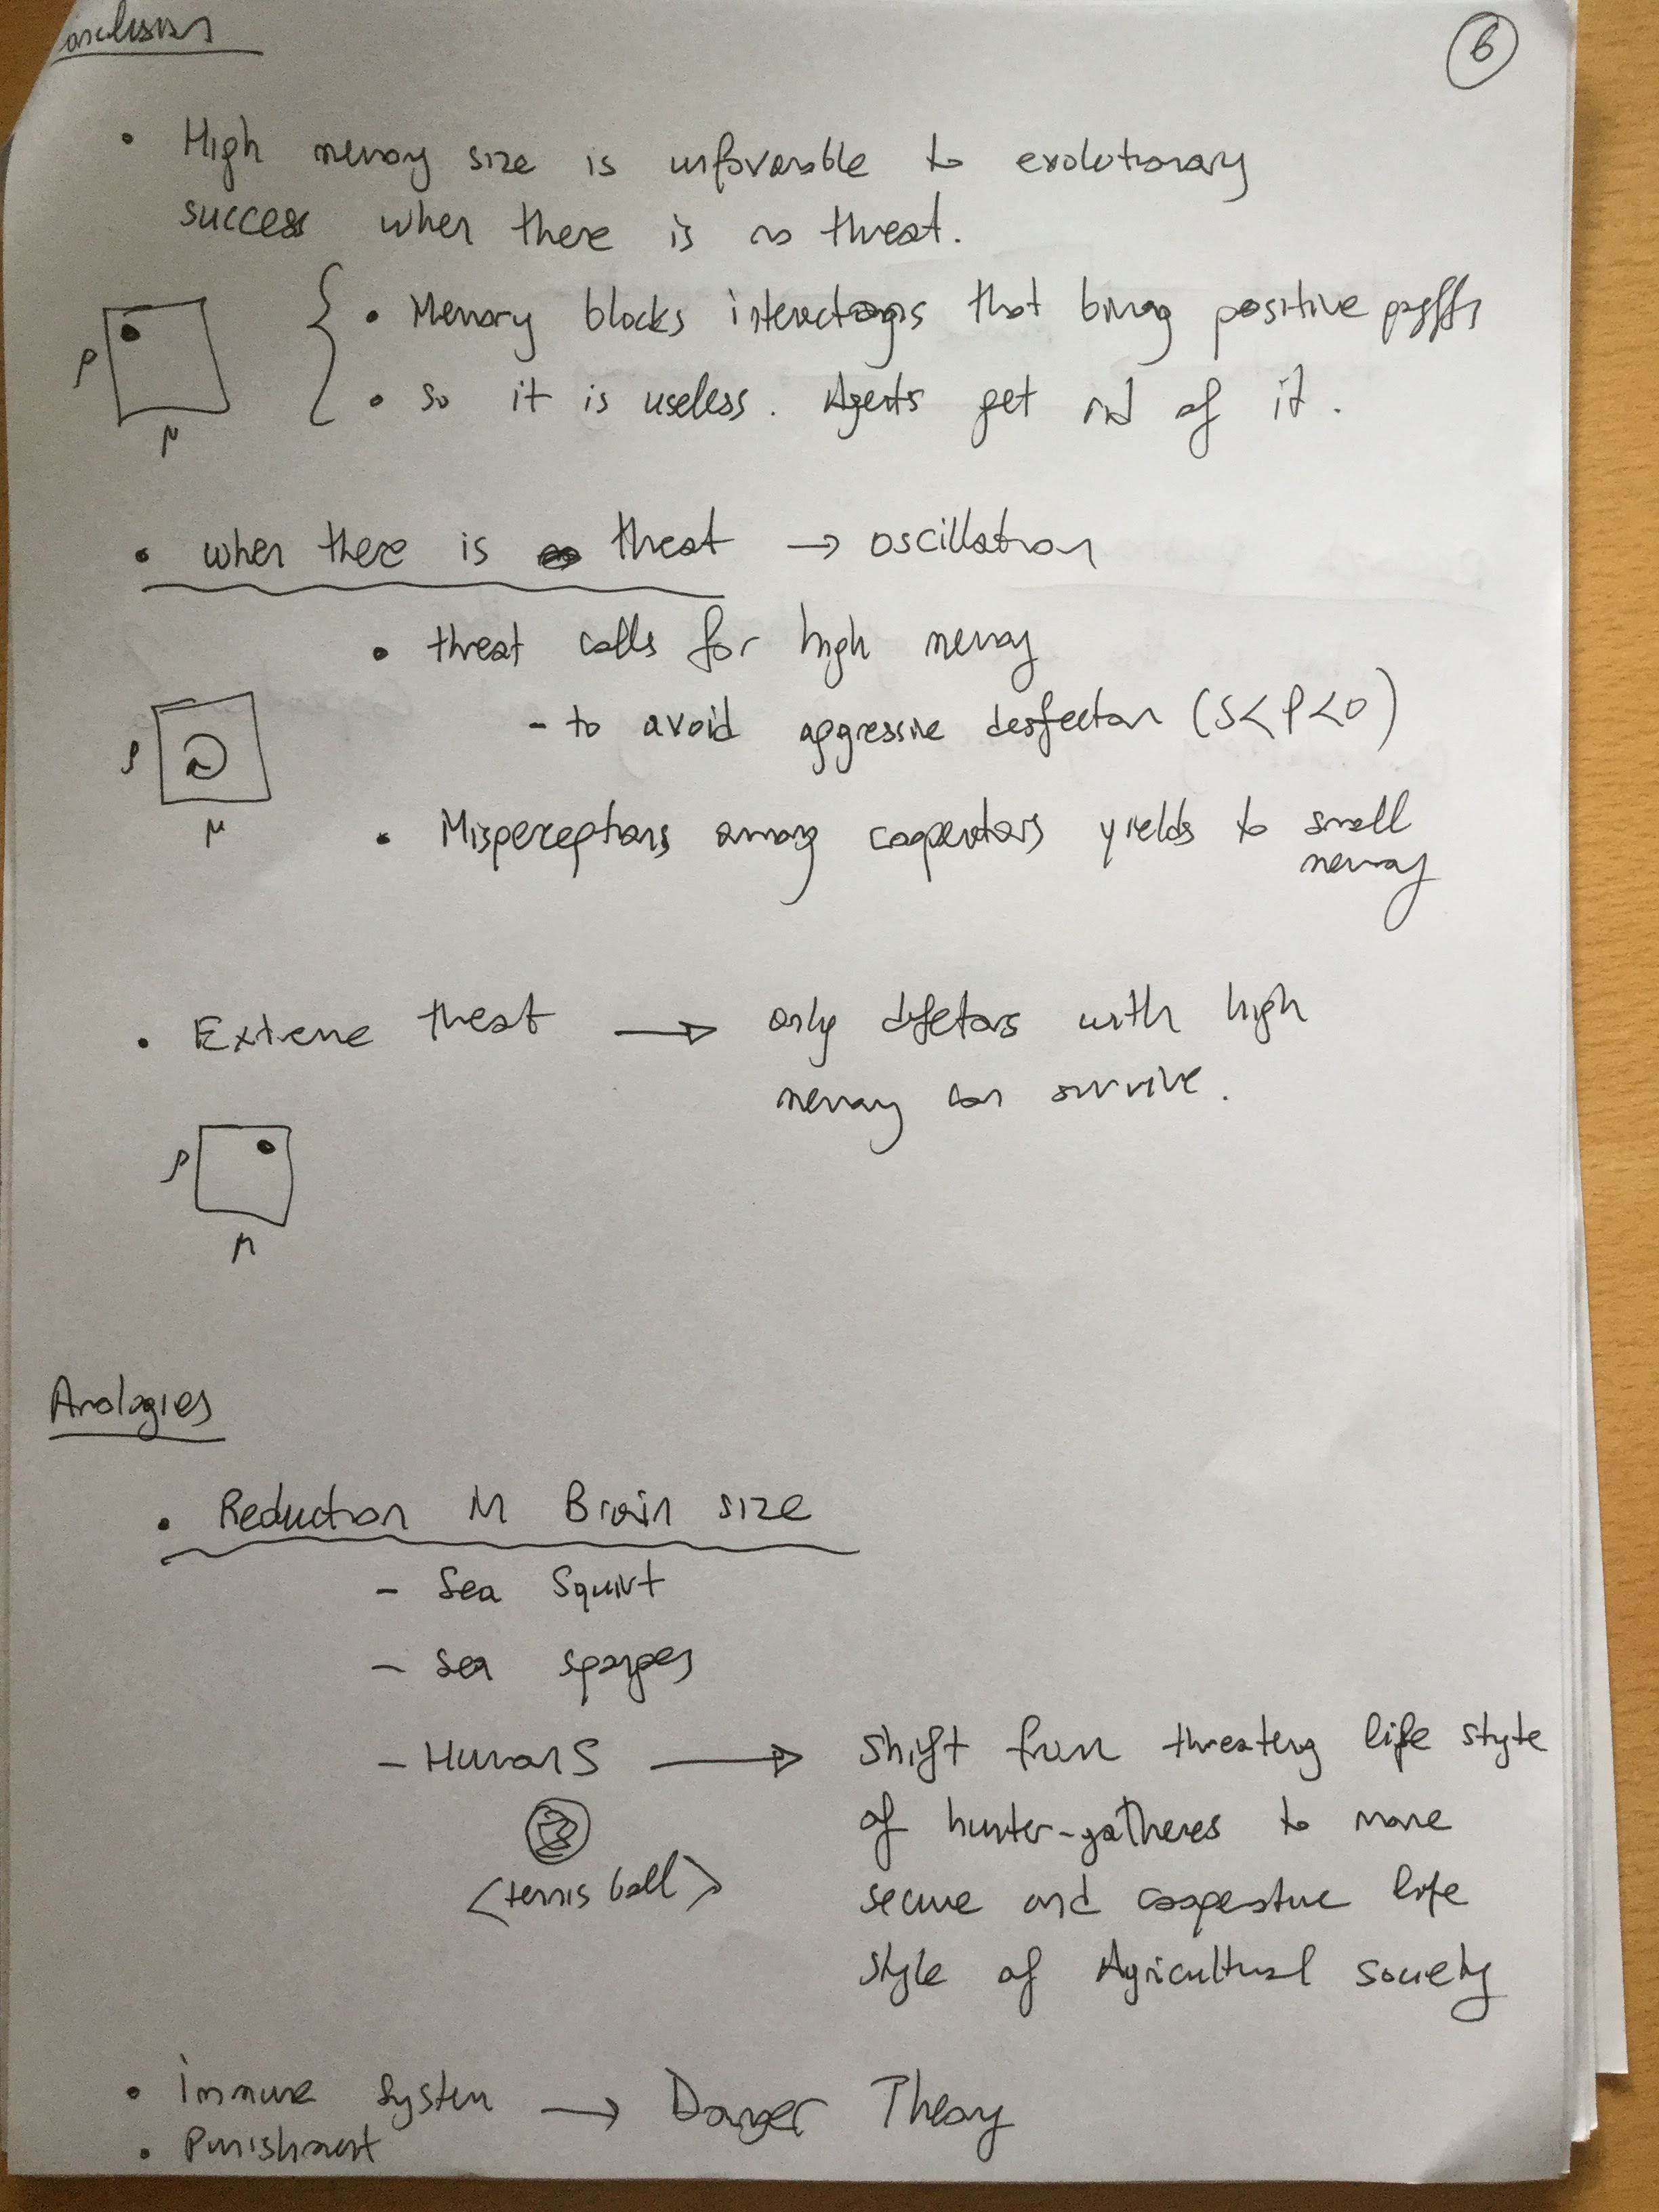 Conclusions
6
• High memory size is unfavorable to evolutionary
success when there is no threat.
• Memory blocks interactions that bring positive payoffs
• so it is useless. Agents get rid of it.
ρ
μ
• when there is threat → oscillation
• threat calls for high memory
- to avoid aggressive desfection (S<P<0)
ρ
μ
• Misperceptions among cooperators yields to small
memory
• Extreme threat → only defectors with high
memory can survive.
ρ
μ
Analogies
• Reduction in Brain size
- Sea Squirt
- Sea sponges
- Humans → shift from threateng life style
of hunter-gatheres to more
secure and cooperative life
style of Agricultural society
<tennis ball>
• immune system → Danger Theory
• Punishment